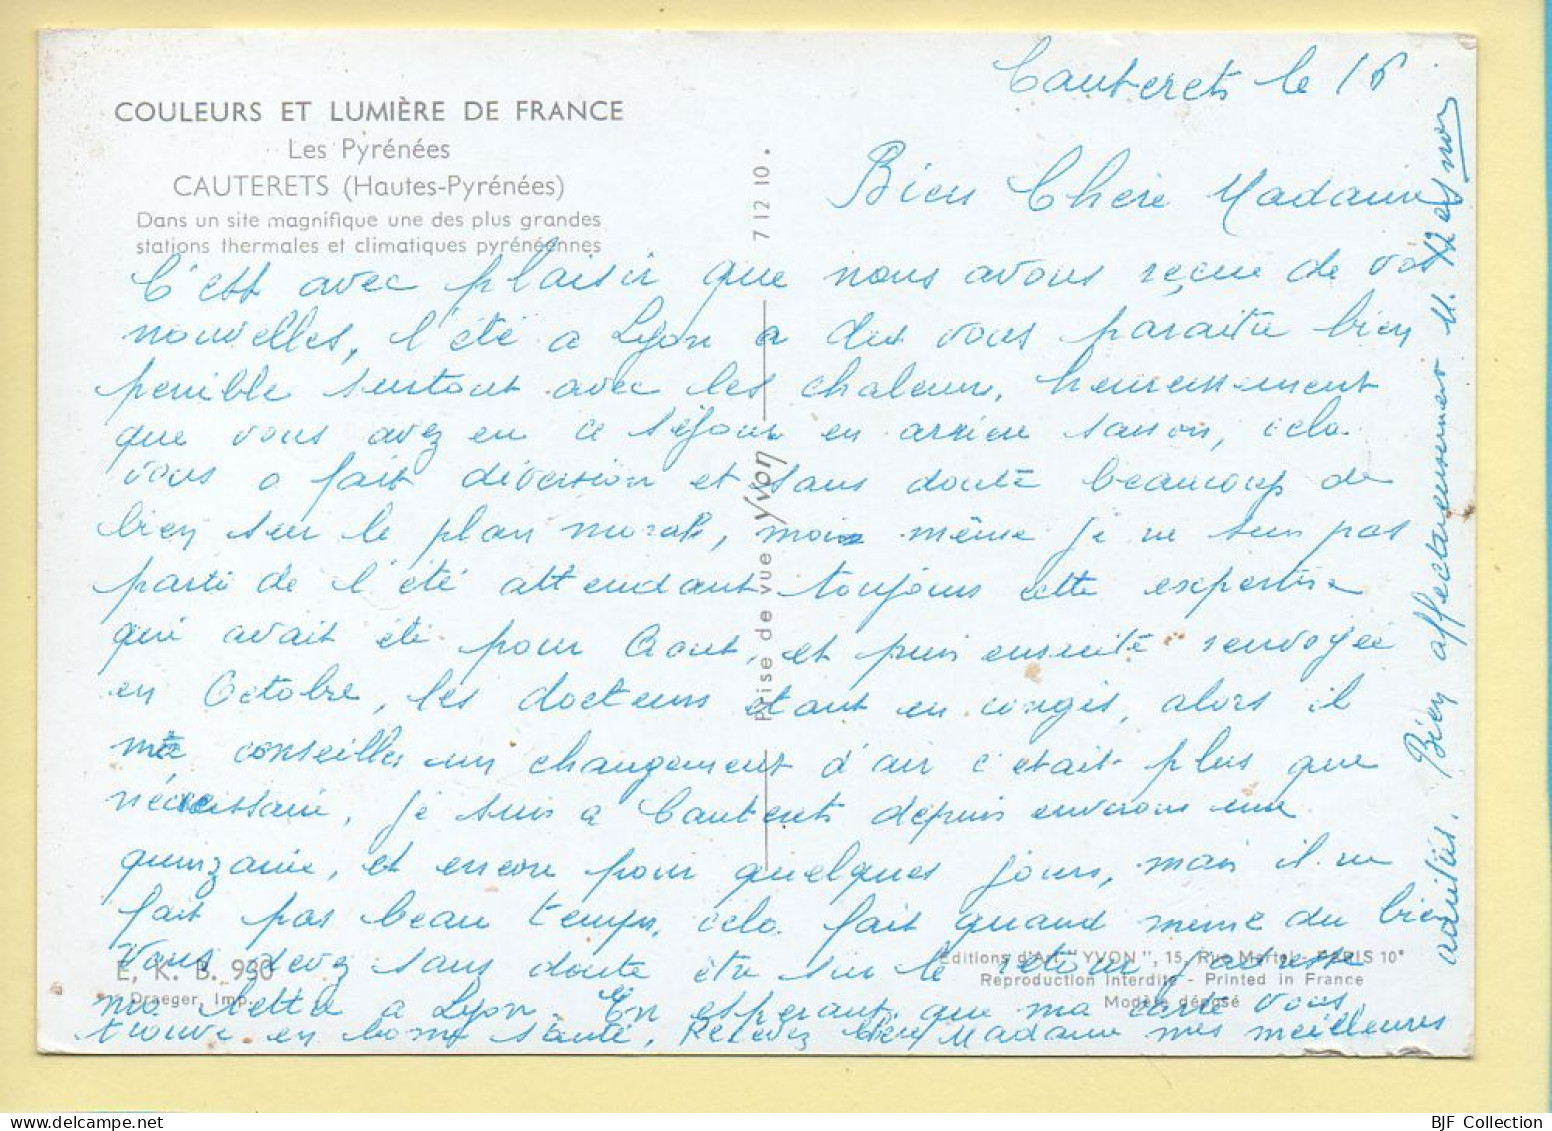 COULEURS ET LUMIÈRE DE FRANCE
Les Pyrénées
CAUTERETS (Hautes-Pyrénées)
Dans un site magnifique une des plus grandes
stations thermales et climatiques pyrénéennes
Cauterets le 16
Bien Chère Madame
C'est avec plaisir que nous avons reçue de vos
nouvelles, l'été a Lyon a du vous paraitre bien
penible surtout avec les chaleurs, heureusement
que vous avez eu ce séjour en arrière saison, cela
vous a fait diversion et sans doute beaucoup de
bien sur le plan moral, moi même je ne suis pas
parti de l'été attendant toujours cette expertise
qui avait été pour Aout, et puis ensuite renvoyée
en Octobre, les docteurs étant en congés, alors il
me conseille un changement d'air c'etait plus que
nécessaire, je suis a Cauterets depuis environ une
quinzaine, et encore pour quelques jours, mais il ne
fait pas beau temps, cela fait quand meme du bien
Vous devez sans doute être sur le retour j'adresse
ma lettre a Lyon. En esperant que ma carte vous
trouve en bonne santé, Recevez chère Madame mes meilleures
amitiés. Bien affectueusement
7 12 10.
Prise de vue Yvon
E. K. B. 930
Draeger, Imp.
Editions d'Art "YVON", 15, Rue Martel - PARIS 10e
Reproduction Interdite - Printed in France
Modèle déposé
BJF Collection